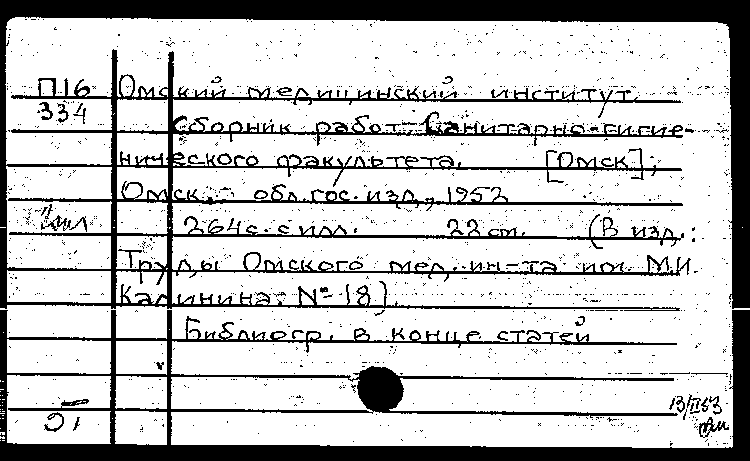 П16 Омский медицинский институт.
334
Сборник работ Санитарно-гигие-
нического факультета. [Омск];
Омск. обл. гос. изд., 1952
264 с. с илл. 22 см. (В изд.:
Труды Омского мед. ин-та им. М.И.
Калинина. № 18).
Библиогр. в конце статей
13/II53